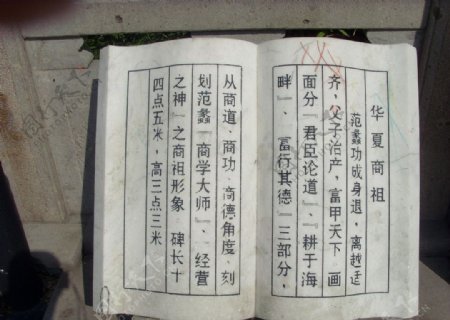 华夏商祖
范蠡功成身退，离越适
齐，父子治产，富甲天下 画
面分『君臣论道』、『耕于海
畔』、『富行其德』三部分，
从商道、商功、商德角度，刻
划范蠡『商学大师』、『经营
之神』之商祖形象 碑长十
四点五米，高三点三米